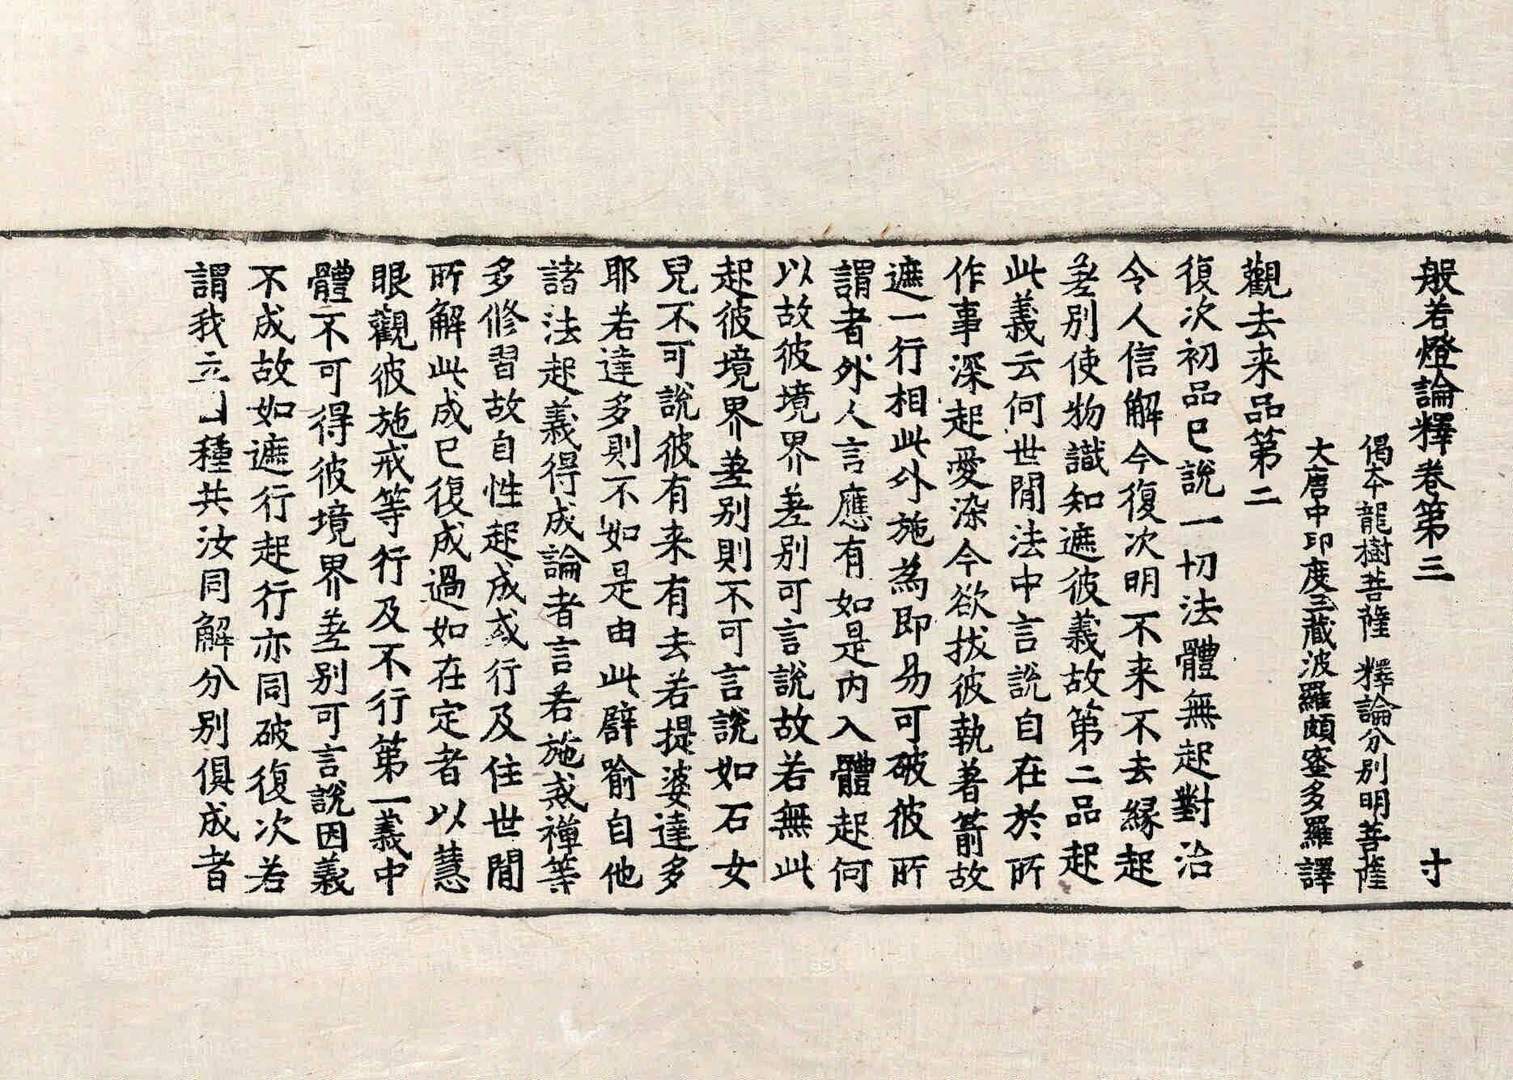 般若燈論釋卷第三 寸
偈本龍樹菩薩 釋論分別明菩薩
大唐中印度三藏波羅頗蜜多羅譯
觀去来品第二
復次初品已說一切法體無起對治
令人信解今復次明不来不去緣起
差別使物識知遮彼義故第二品起
此義云何世間法中言說自在於所
作事深起愛染今欲拔彼執著箭故
遮一行相此外施為即易可破彼所
謂者外人言應有如是內入體起何
以故彼境界差別可言說故若無此
起彼境界差別則不可言說如石女
兒不可說彼有来有去若提婆達多
耶若達多則不如是由此譬喻自他
諸法起義得成論者言若施戒禪等
多修習故自性起成或行及住世間
所解此成已復成過如在定者以慧
眼觀彼施戒等行及不行第一義中
體不可得彼境界差別可言說因義
不成故如遮行起行亦同破復次若
謂我立因種共汝同解分別俱成者